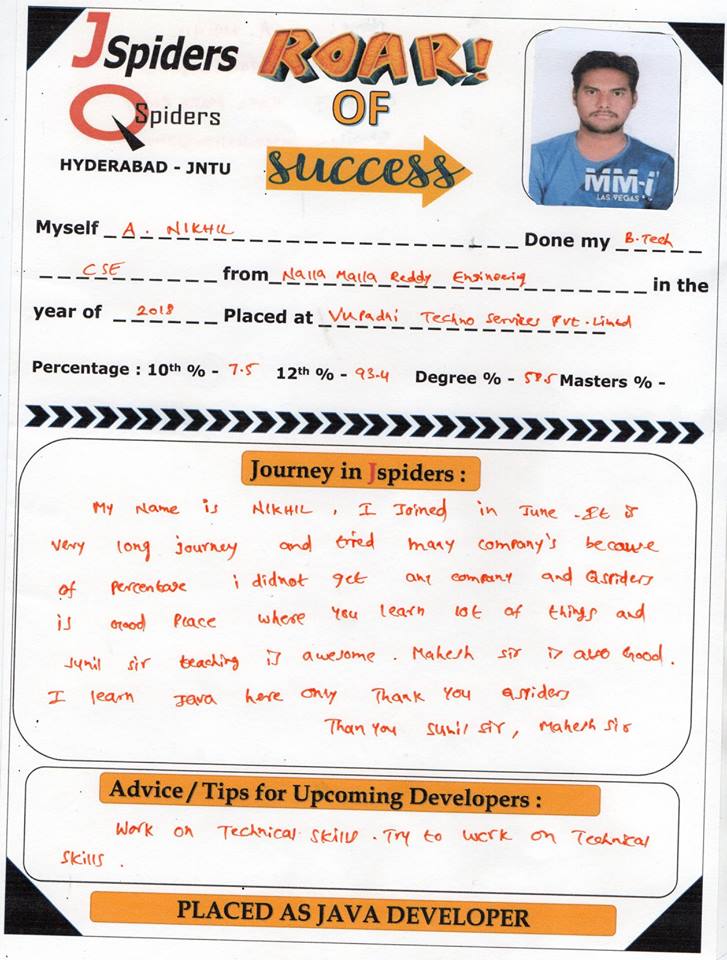 JSpiders
ROAR!
QSpiders
OF
HYDERABAD - JNTU
success
MM-i
LAS VEGAS
Myself A. NIKHIL Done my B.Tech
CSE from Nalla Malla Reddy Engineering in the
year of 2018 Placed at Vupadhi Techno Services Pvt. Limed
Percentage : 10th % - 7.5 12th % - 93.4 Degree % - 58.5 Masters % -
Journey in Jspiders :
My Name is NIKHIL, I Joined in June . It is
very long journey and tried many company's because
of percentage i didnot get any company and Qspiders
is Good Place where you learn lot of things and
Sunil sir teaching is awesome. Mahesh sir is also Good.
I learn Java here only Thank you Qspiders
Than you Sunil sir, Mahesh Sir
Advice / Tips for Upcoming Developers :
Work on Technical skills. Try to work on Technical
skills.
PLACED AS JAVA DEVELOPER